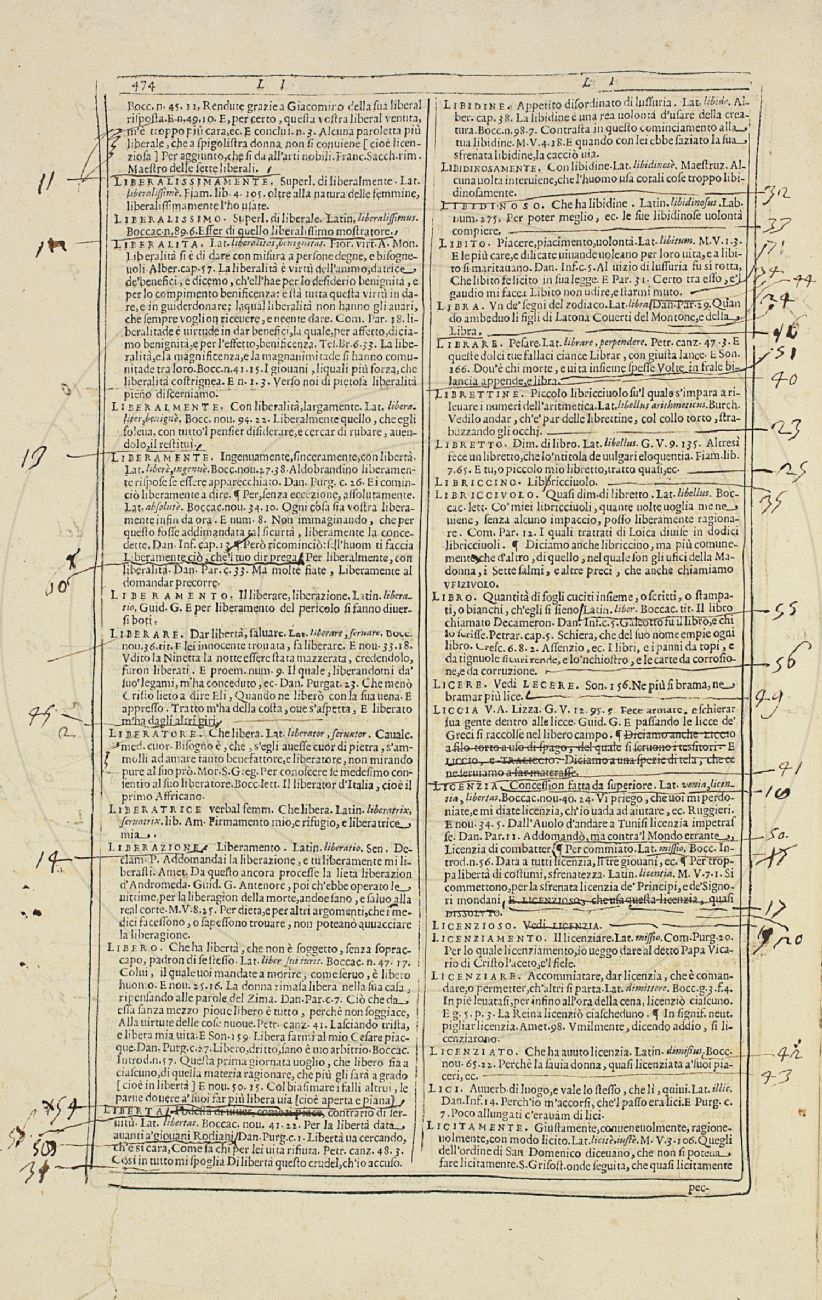 474 L I L I
Bocc. n. 45. 11. Rendute grazie a Giacomino della sua liberal
risposta. E n. 49. 10. E, per certo, questa vostra liberal venuta,
m'è troppo più cara, ec. E conclus. n. 3. Alcuna paroletta più
liberale, che a spigolistra donna non si conviene [cioè licen-
ziosa] Per aggiunto, che si da all'arti nobili. Franc. Sacch. rim.
Maestro delle sette liberali.
11
LIBERALISSIMAMENTE. Superl. di liberalmente. Lat.
liberalissimè. Fiam. lib. 4. 105. oltre alla natura delle femmine,
liberalissimamente l'ho usate.
LIBERALISSIMO. Superl. di liberale. Latin. liberalissimus.
Boccac. n. 89. 6. Esser di quello liberalissimo mostratore.
LIBERALITA. Lat. liberalitas, benignitas. Fior. virt. A. Mon.
Liberalità si è di dare con misura a persone degne, e bisogne-
uoli. Alber. cap. 57. La liberalità è virtù dell'animo, datrice
de' benefici, e dicemo, ch'ell'hae per lo desiderio benignità, e
per lo compimento benificenza: està tutta questa virtù in da-
re, e in guiderdonare; laqual liberalità non hanno gli auari,
che sempre voglion riceuere, e neente dare. Com. Par. 18. li-
beralitade è uirtude in dar benefici, la quale, per affetto, dicia-
mo benignità, e per l'effetto, benificenza. Tes. Br. 6. 33. La libe-
ralità, e la magnificenza, e la magnanimitade si hanno comu-
nitade tra loro. Bocc. n. 41. 15. I giouani, li quali più forza, che
liberalità costrignea. E n. 1. 3. Verso noi di pietosa liberalità
pieno discerniamo.
LIBERALMENTE. Con liberalità, largamente. Lat. libera-
liter, benignè. Bocc. nou. 94. 22. Liberalmente quello, che egli
solena, con tutto'l pensier disiderare, e cercar di rubare, auen-
dolo, il restituì.
13
LIBERAMENTE. Ingenuamente, sinceramente, con libertà.
Lat. liberè, ingenuè. Bocc. nou. 27. 38. Aldobrandino liberamen-
te rispose se essere apparecchiato. Dan. Purg. c. 26. Ei comin-
ciò liberamente a dire. ¶ Per, senza eccezione, assolutamente.
Lat. absolutè. Boccac. nou. 34. 10. Ogni cosa sia vostra libera-
mente infin da ora. E num. 8. Non immaginando, che per
questo fosse addimandata tal sicurtà, liberamente la conce-
dette. Dan. Inf. cap. 13. ¶ Però ricominciò: se l'huom ti faccia
Liberamente ciò, che'l tuo dir prega. Per liberalmente, con
liberalità. Dan. Par. c. 33. Ma molte fiate, Liberamente al
domandar precorre.
LIBERAMENTO. Il liberare, liberazione. Latin. libera-
tio. Guid. G. E per liberamento del pericolo si fanno diuer-
si boti.
LIBERARE. Dar libertà, saluare. Lat. liberare, seruare. Bocc.
nou. 36. tit. E lei innocente trouata, fa liberare. E nou. 33. 18.
Vdito la Ninetta la notte essere stata mazzerata, credendolo,
furon liberati. E proem. num. 9. Il quale, liberandomi da'
suo' legami, m'ha conceduto, ec. Dan. Purgat. 23. Che menò
Cristo lieto a dire Eli, Quando ne liberò con la sua uena. E
appresso. Tratto m'ha della costa, oue s'aspetta, E liberato
m'ha dagli altri giri.
45
2
LIBERATORE. Che libera. Lat. liberator, seruator. Caualc.
med. cuor. Bisogno è, che, s'egli auesse cuor di pietra, s'am-
molli ad amare tanto benefattore, e liberatore, non mirando
pure al suo prò. Mor. S. Greg. Per conoscere se medesimo con-
ientio al suo liberatore. Bocc. lett. Il liberator d'Italia, cioè il
primo Affricano.
LIBERATRICE verbal femm. Che libera. Latin. liberatrix,
seruatrix. lib. Am. Firmamento mio, e rifugio, e liberatrice
mia.
14
LIBERAZIONE. Liberamento. Latin. liberatio. Sen. De-
clam. P. Addomandai la liberazione, e tu liberamente mi li-
berasti. Amet. Da questo ancora processe la lieta liberazion
d'Andromeda. Guid. G. Antenore, poi ch'ebbe operato le
uittime, per la liberagion della morte, and Enea, e saluo alla
real corte. M. V. 8. 25. Per dieta, e per altri argomenti, che i me-
dici facessono, o sapessono trouare, non poteano auuacciare
la liberagione.
LIBERO. Che ha libertà, che non è soggetto, senza soprac-
capo, padron di se stesso. Lat. liber sui iuris. Boccac. n. 47. 17.
Colui, il quale uoi mandate a morire, come seruo, è libero
huomo. E nou. 25. 16. La donna rimasa libera nella sua casa,
ripensando alle parole del Zima. Dan. Par. c. 7. Ciò che da
essa sanza mezzo pioue libero è tutto, perchè non soggiace,
Alla uirtute delle cose nuoue. Petr. canz. 41. Lasciando trista,
e libera mia uita. E Son. 159. Libera farmi al mio Cesare piac-
que. Dan. Purg. c. 27. Libero, dritto, sano è tuo arbitrio. Boccac.
Introd. n. 57. Questa prima giornata uoglio, che libero sia a
ciascuno, di quella materia ragionare, che più gli sarà a grado
[cioè in libertà] E nou. 50. 15. Col biasimare i falli altrui, le
parue douere a' suoi far più libera uia [cioè aperta e piana]
54
LIBERTÀ. Podestà di uiuer, com'altri piace, contrario di ser-
uitù. Lat. libertas. Boccac. nou. 41. 22. Per la libertà data
auanti a' giouani Rodiani. Dan. Purg. c. 1. Libertà ua cercando,
ch'è sì cara, Come sa chi per lei uita rifiuta. Petr. canz. 48. 3.
Così in tutto mi spoglia Di libertà questo crudel, ch'io accuso.
LIBIDINE. Appetito disordinato di lussuria. Lat. libido. Al-
ber. cap. 38. La libidine è una rea uolontà d'usare della crea-
tura. Bocc. n. 98. 7. Contrasta in questo cominciamento alla
tua libidine. M. V. 4. 18. E quando con lei ebbe saziato la sua
sfrenata libidine, la cacciò uia.
LIBIDINOSAMENTE. Con libidine. Lat. libidinosè. Maestruz. Al-
cuna uolta interuiene, che l'huomo usa cotali cose troppo libi-
dinosamente.
32
LIBIDINOSO. Che ha libidine. Latin. libidinosus. Lab.
num. 275. Per poter meglio, ec. le sue libidinose uolontà
compiere.
33
LIBITO. Piacere, piacimento, uolontà. Lat. libitum. M. V. 1. 3.
E le più care, e dilicate uiuande uoleano per loro uita, e a libi-
to si maritauano. Dan. Inf. c. 5. Al uizio di lussuria fu sì rotta,
Che libito fe licito in sua legge. E Par. 31. Certo tra esso, e'l
gaudio mi facea Libito non udire, e starmi muto.
44
LIBRA. Vn de' segni del zodiaco. Lat. libra. Dan. Par. 29. Quan
do ambeduo li figli di Latona Couerti del Montone, e della
Libra.
34
46
LIBRARE. Pesare. Lat. librare, perpendere. Petr. canz. 47. 3. E
queste dolci tue fallaci ciance Librar, con giusta lance. E Son.
166. Dou'è chi morte, e uita insieme spesse Volte in frale bi-
lancia appende, e libra.
51
40
LIBRETTINE. Piccolo libricciuolo su'l quale s'impara a ri-
leuare i numeri dell'aritmetica. Lat. libellus arithmeticus. Burch.
Vedilo andar, ch'e' par delle librettine, col collo torto, stra-
buzzando gli occhi.
23
LIBRETTO. Dim. di libro. Lat. libellus. G. V. 9. 135. Altresì
fece un libretto, che lo'ntitola de uulgari eloquentia. Fiam. lib.
7. 65. E tu, o piccolo mio libretto, tratto quasi, ec.
25
LIBRICCINO. Libricciuolo.
35
LIBRICCIVOLO. Quasi dim. di libretto. Lat. libellus. Boc-
cac. lett. Co' miei libricciuoli, quante uolte uoglia me ne
uiene, senza alcuno impaccio, posso liberamente ragiona-
re. Com. Par. 12. I quali trattati di Loica diuise in dodici
libricciuoli. ¶ Diciamo anche libriccino, ma più comune-
mente, che d'altro, di quello, nel quale son gli ufici della Ma-
donna, i Sette salmi, e altre preci, che anche chiamiamo
VFIZIVOLO.
LIBRO. Quantità di fogli cuciti insieme, o scritti, o stampa-
ti, o bianchi, ch'egli si sieno. Latin. liber. Boccac. tit. Il libro
chiamato Decameron. Dan. Inf. c. 5. Galeotto fu il libro, e chi
lo scrisse. Petrar. cap. 5. Schiera, che del suo nome empie ogni
libro. Cresc. 6. 8. 2. Assenzio, ec. I libri, e i panni da topi, e
da tignuole sicuri rende, e lo'nchiostro, e le carte da corrosio-
ne, e da corruzione.
55
56
LICERE. Vedi LECERE. Son. 156. Ne più si brama, ne
bramar più lice.
49
LICCIA V. A. Lizza. G. V. 12. 95. 5. Fece armare, e schierar
sua gente dentro alle licce. Guid. G. E passando le licce de'
Greci si raccolse nel libero campo. ¶ Diciamo anche LICCIO
a filo torto a uso di spago, del quale si seruono i tessitori. E
LICCIO, e TRALICCIO. Diciamo a una spezie di tela, che ce
ne seruiamo a far materasse.
41
LICENZIA. Concession fatta da superiore. Lat. venia, licen-
tia, libertas. Boccac. nou. 40. 24. Vi priego, che uoi mi perdo-
niate, e mi diate licenzia, ch'io uada ad aiutare, ec. Ruggieri.
E nou. 34. 5. Dall'Auolo d'andare a Tunisi licenzia impetras
se. Dan. Par. 11. Addomandò, ma contra'l Mondo errante,
Licenzia di combatter. ¶ Per commiato. Lat. missio. Bocc. In-
trod. n. 56. Data a tutti licenzia, li tre giouani, ec. ¶ Per trop-
pa libertà di costumi, sfrenatezza. Latin. licentia. M. V. 7. 1. Si
commettono, per la sfrenata licenzia de' Principi, e de' Signo-
ri mondani. E LICENZIOSO, che usa questa licenzia, quasi
DISSOLVTO.
50
17
LICENZIOSO. Vedi LICENZIA.
20
LICENZIAMENTO. Il licenziare. Lat. missio. Com. Purg. 20.
Per lo quale licenziamento, io ueggo dare al detto Papa Vica-
rio di Cristo l'aceto, e'l fiele.
LICENZIARE. Accommiatare, dar licenzia, che è coman-
dare, o permetter, ch'altri si parta. Lat. dimittere. Bocc. g. 3. f. 4.
In piè leuatasi, per infino all'ora della cena, licenziò ciascuno.
E g. 5. p. 3. La Reina licenziò ciascheduno. ¶ In signif. neut.
pigliar licenzia. Amet. 98. Vmilmente, dicendo addio, si li-
cenziarono.
42
LICENZIATO. Che ha auuto licenzia. Latin. dimissus. Bocc.
nou. 65. 22. Perchè la sauia donna, quasi licenziata a' suoi pia-
ceri, ec.
43
LICI. Auuerb. di luogo, e vale lo stesso, che lì, quiui. Lat. illic.
Dan. Inf. 14. Perch'io m'accorsi, che'l passo era lici. E Purg. c.
7. Poco allungati c'erauam di lici.
LICITAMENTE. Giustamente, conueneuolmente, ragione-
uolmente, con modo licito. Lat. licitè, iustè. M. V. 3. 106. Quegli
dell'ordine di San Domenico diceuano, che non si potea
fare licitamente. S. Grisost. onde seguita, che quasi licitamente
pec-